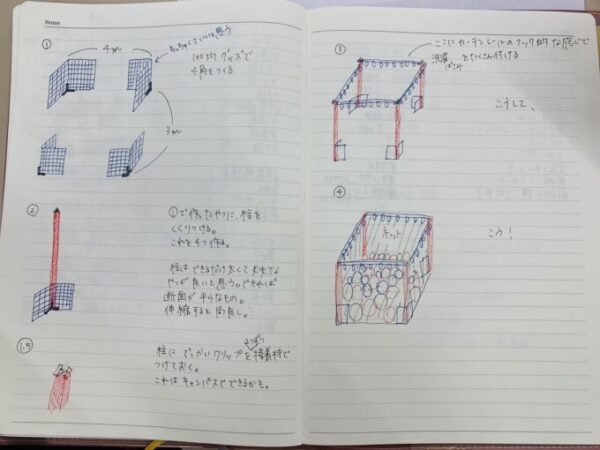 Notes
①
4m
ちっちゃくていいと思う
100均グッズで
4角をつくる
3m
②
①で作ったやつに、柱を
くくりつける。
これを4つ作る。
柱はできるだけ太くて丈夫な
やつが良いと思う。できれば
断面が平らなもの。
伸縮すると尚良し。
1.5
柱にでっかいクリップを接着材で
つけておく。
これはキャンパスでできるかも。
③
ここにカーテンレールのフック的な感じで
洗濯ばさみをたくさん付ける
こうして、
④
ネット
こう!